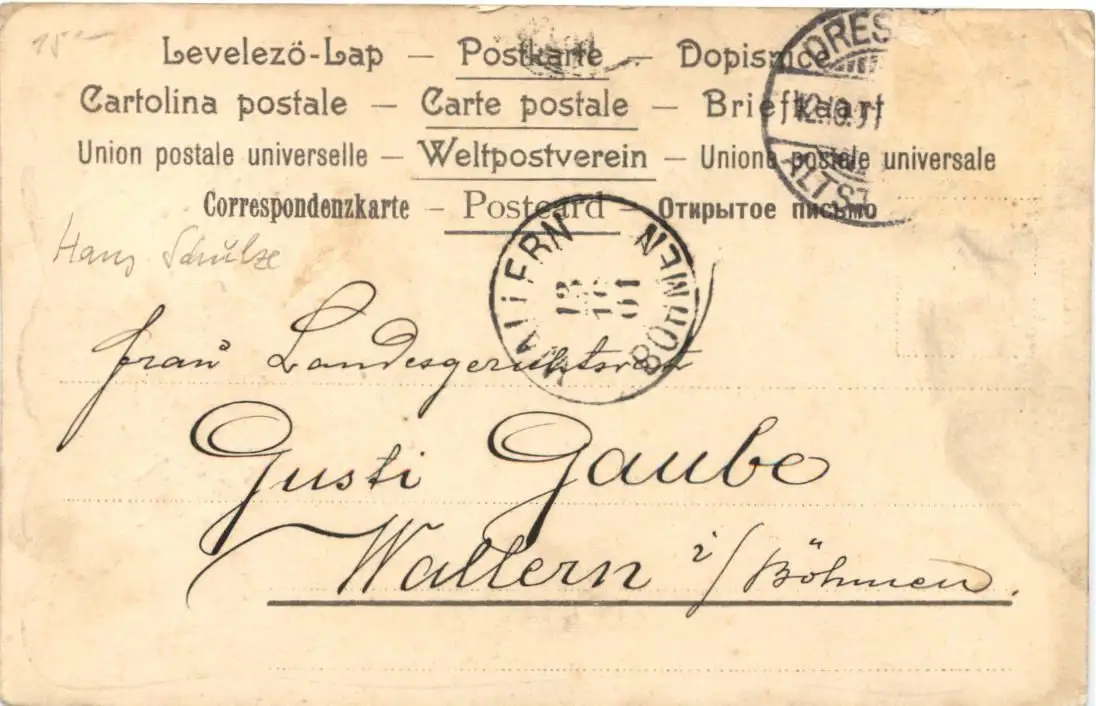 15 -
Levelező-Lap — Postkarte — Dopisnice
Cartolina postale — Carte postale — Briefkaart
Union postale universelle — Weltpostverein — Unione postale universale
Correspondenzkarte — Postcard — Открытое письмо
DRES
12.10.
ALTST
WALLERN BÖHMEN
13 10 01
Hans Schulze
Frau Landesgerichtsrat
Gusti Gaube
Wallern i/Böhmen.